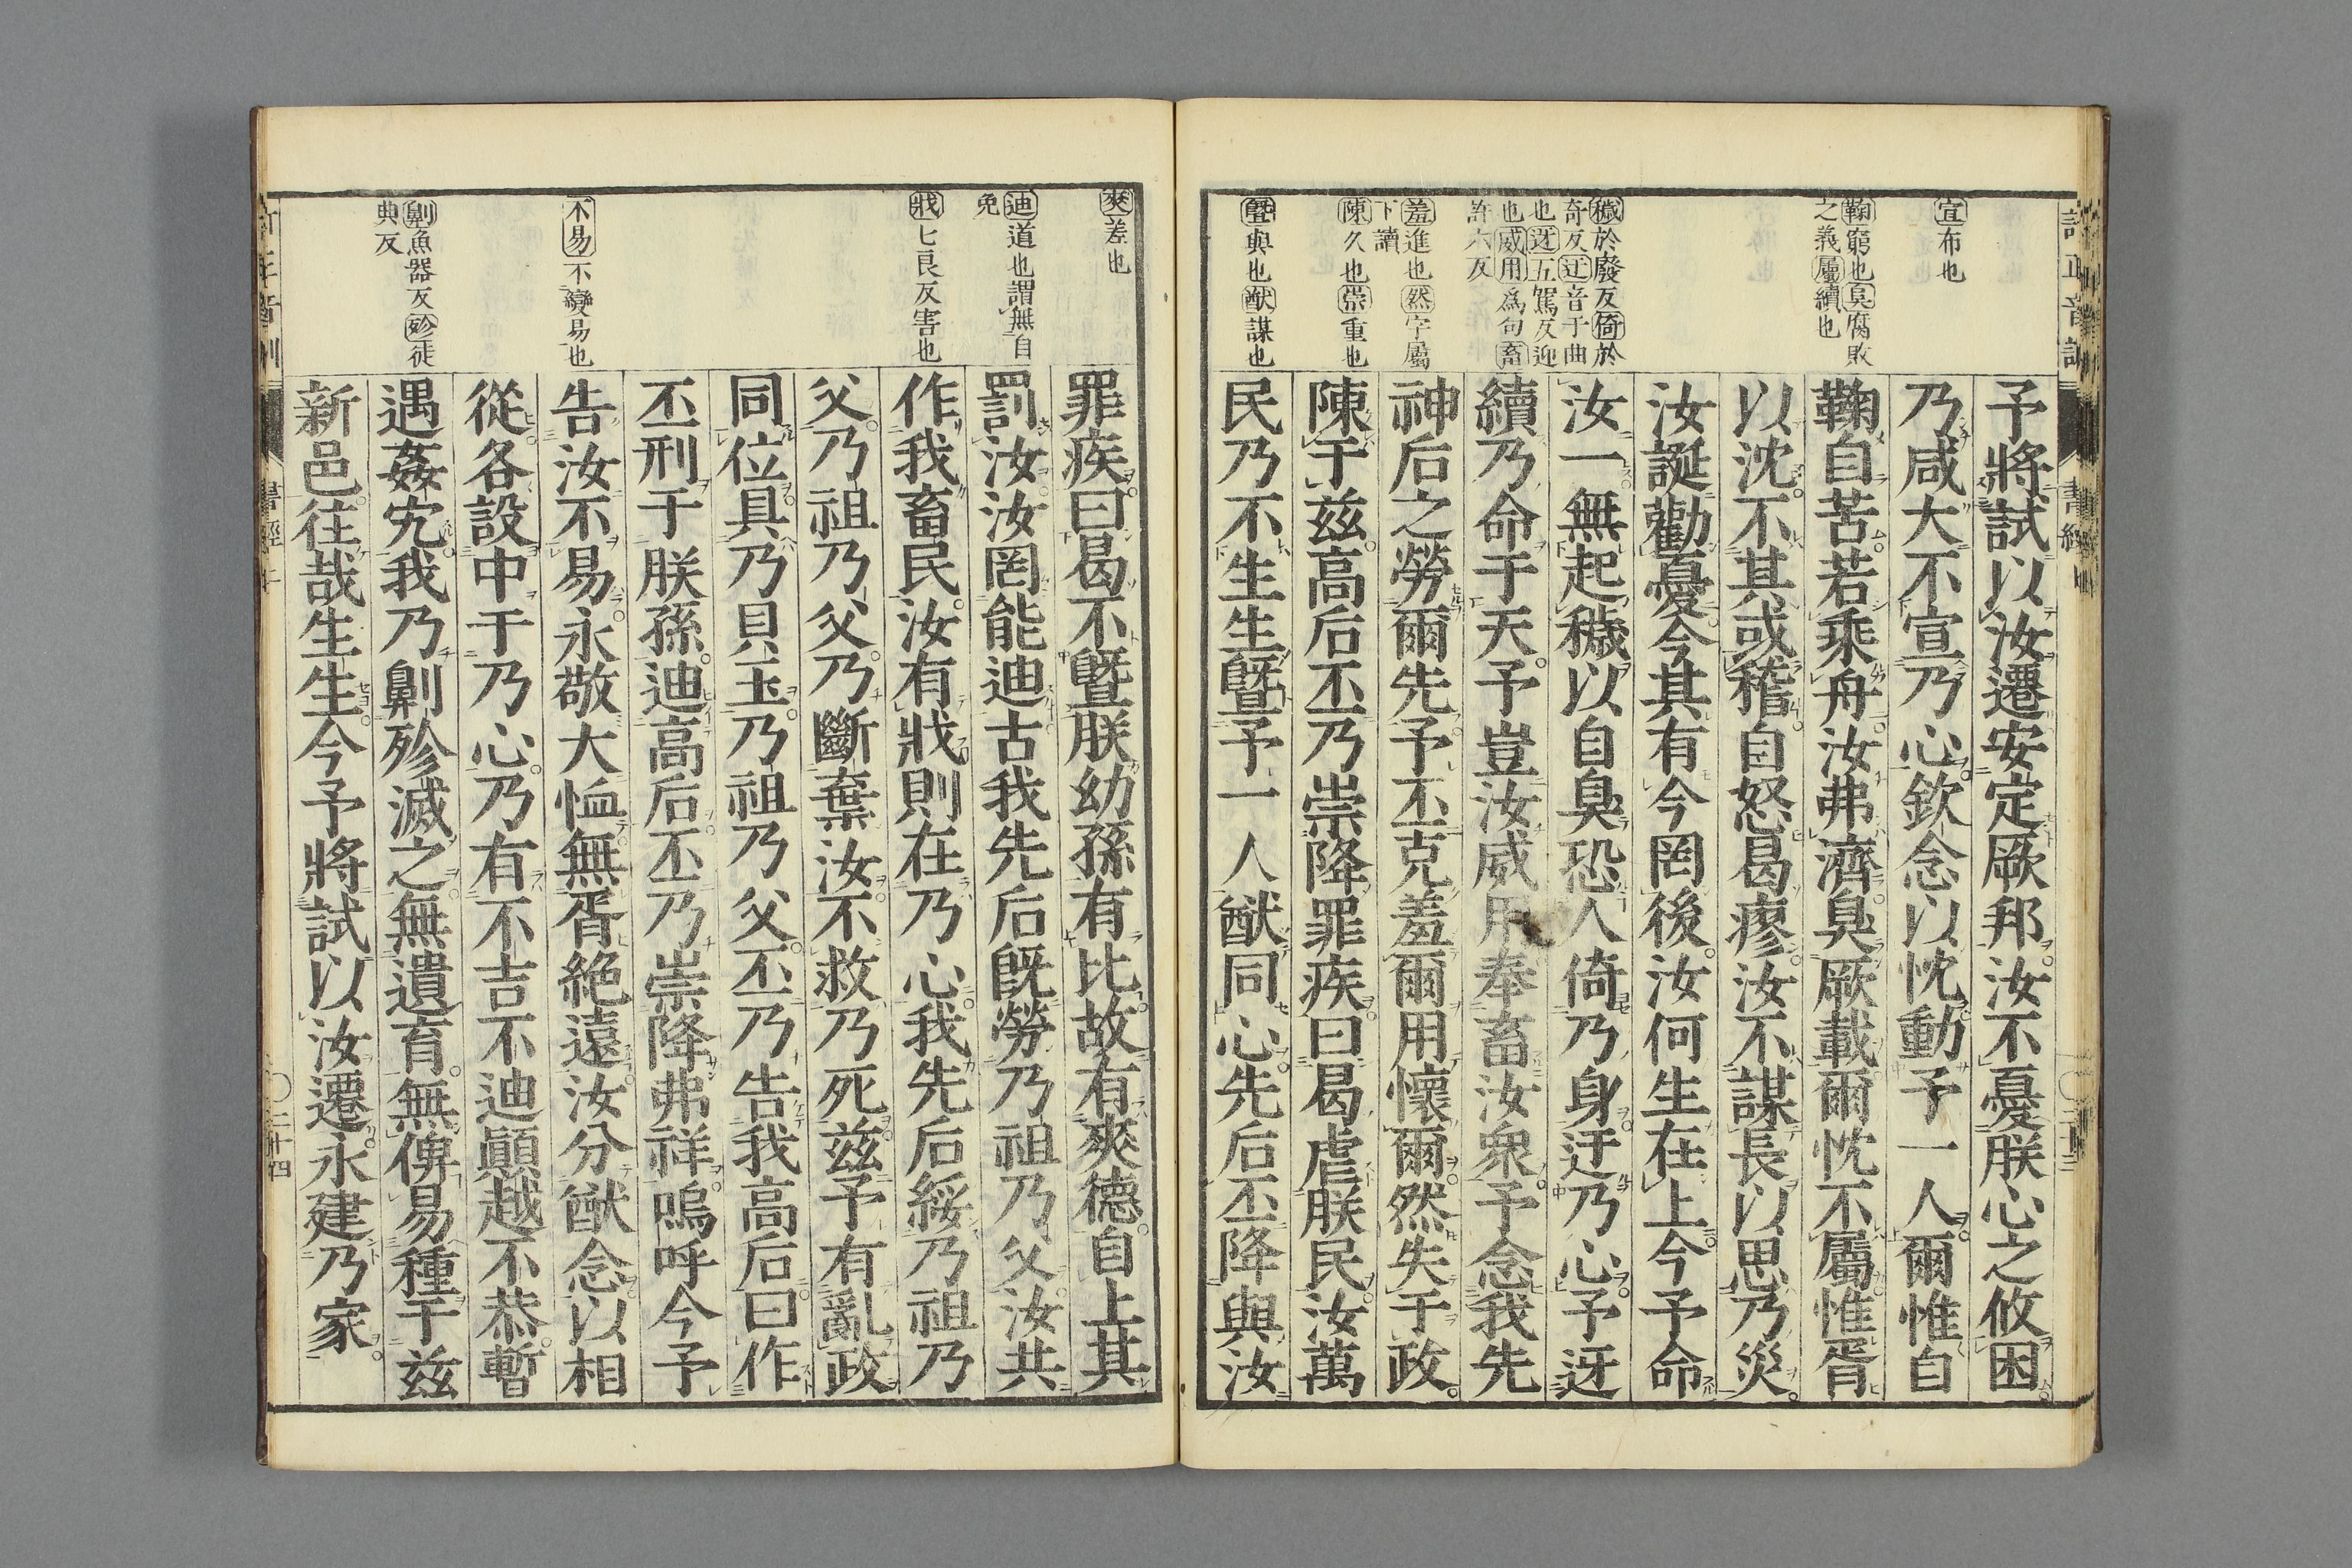 宣布也
鞠窮也臭腐敗
之義屬續也
穢於廢反倚於
奇反迂音于曲
也迓五駕反迎
也威用爲句畜
許六反
羞進也然字屬
下讀
陳久也崇重也
曁與也猷謀也
予將試以汝遷安定厥邦汝不憂朕心之攸困
乃咸大不宣乃心欽念以忱動予一人爾惟自
鞠自苦若乘舟汝弗濟臭厥載爾忱不屬惟胥
以沈不其或稽自怒曷瘳汝不謀長以思乃災
汝誕勸憂今其有今罔後汝何生在上今予命
汝一無起穢以自臭恐人倚乃身迂乃心予迓
續乃命于天予豈汝威用奉畜汝衆予念我先
神后之勞爾先予丕克羞爾用懷爾然失于政
陳于茲高后丕乃崇降罪疾曰曷虐朕民汝萬
民乃不生生曁予一人猷同心先后丕降與汝
爽差也
迪道也謂無自
免
戕七良反害也
不易不變易也
劓魚器反殄徒
典反
罪疾曰曷不曁朕幼孫有比故有爽德自上其
罰汝汝罔能迪古我先后旣勞乃祖乃父汝共
作我畜民汝有戕則在乃心我先后綏乃祖乃
父乃祖乃父乃斷棄汝不救乃死茲予有亂政
同位具乃貝玉乃祖乃父丕乃告我高后曰作
丕刑于朕孫迪高后丕乃崇降弗祥嗚呼今予
告汝不易永敬大恤無胥絶遠汝分猷念以相
從各設中于乃心乃有不吉不迪顚越不恭暫
遇姦宄我乃劓殄滅之無遺育無俾易種于茲
新邑往哉生生今予將試以汝遷永建乃家
二十四